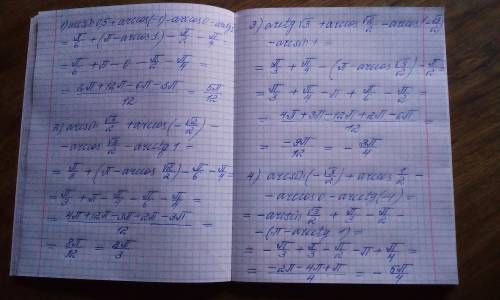 1) arcsin 0,5 + arccos(-1) - arccos 0 - arctg 1
= π/6 + (π - arccos 1) - π/2 - π/4 =
= π/6 + π - 0 - π/2 - π/4 =
= (2π + 12π - 6π - 3π)/12 = 5π/12
2) arcsin √3/2 + arccos(-√2/2) -
- arccos √3/2 - arctg 1 =
= π/3 + (π - arccos √2/2) - π/6 - π/4 =
= π/3 + π - π/4 - π/6 - π/4 =
= (4π + 12π - 3π - 2π - 3π)/12 =
= 8π/12 = 2π/3
3) arctg √3 + arccos √2/2 - arccos(-√3/2)
- arcsin 1 =
= π/3 + π/4 - (π - arccos √3/2) - π/2 =
= π/3 + π/4 - π + π/6 - π/2 =
= (4π + 3π - 12π + 2π - 6π)/12 =
= -9π/12 = -3π/4
4) arcsin(-√3/2) + arccos 1/2 -
- arccos 0 - arcctg(-1) =
= -arcsin √3/2 + π/3 - π/2 -
- (π - arcctg 1) =
= -π/3 + π/3 - π/2 - π + π/4 =
= (-2π - 4π + π)/4 = -5π/4